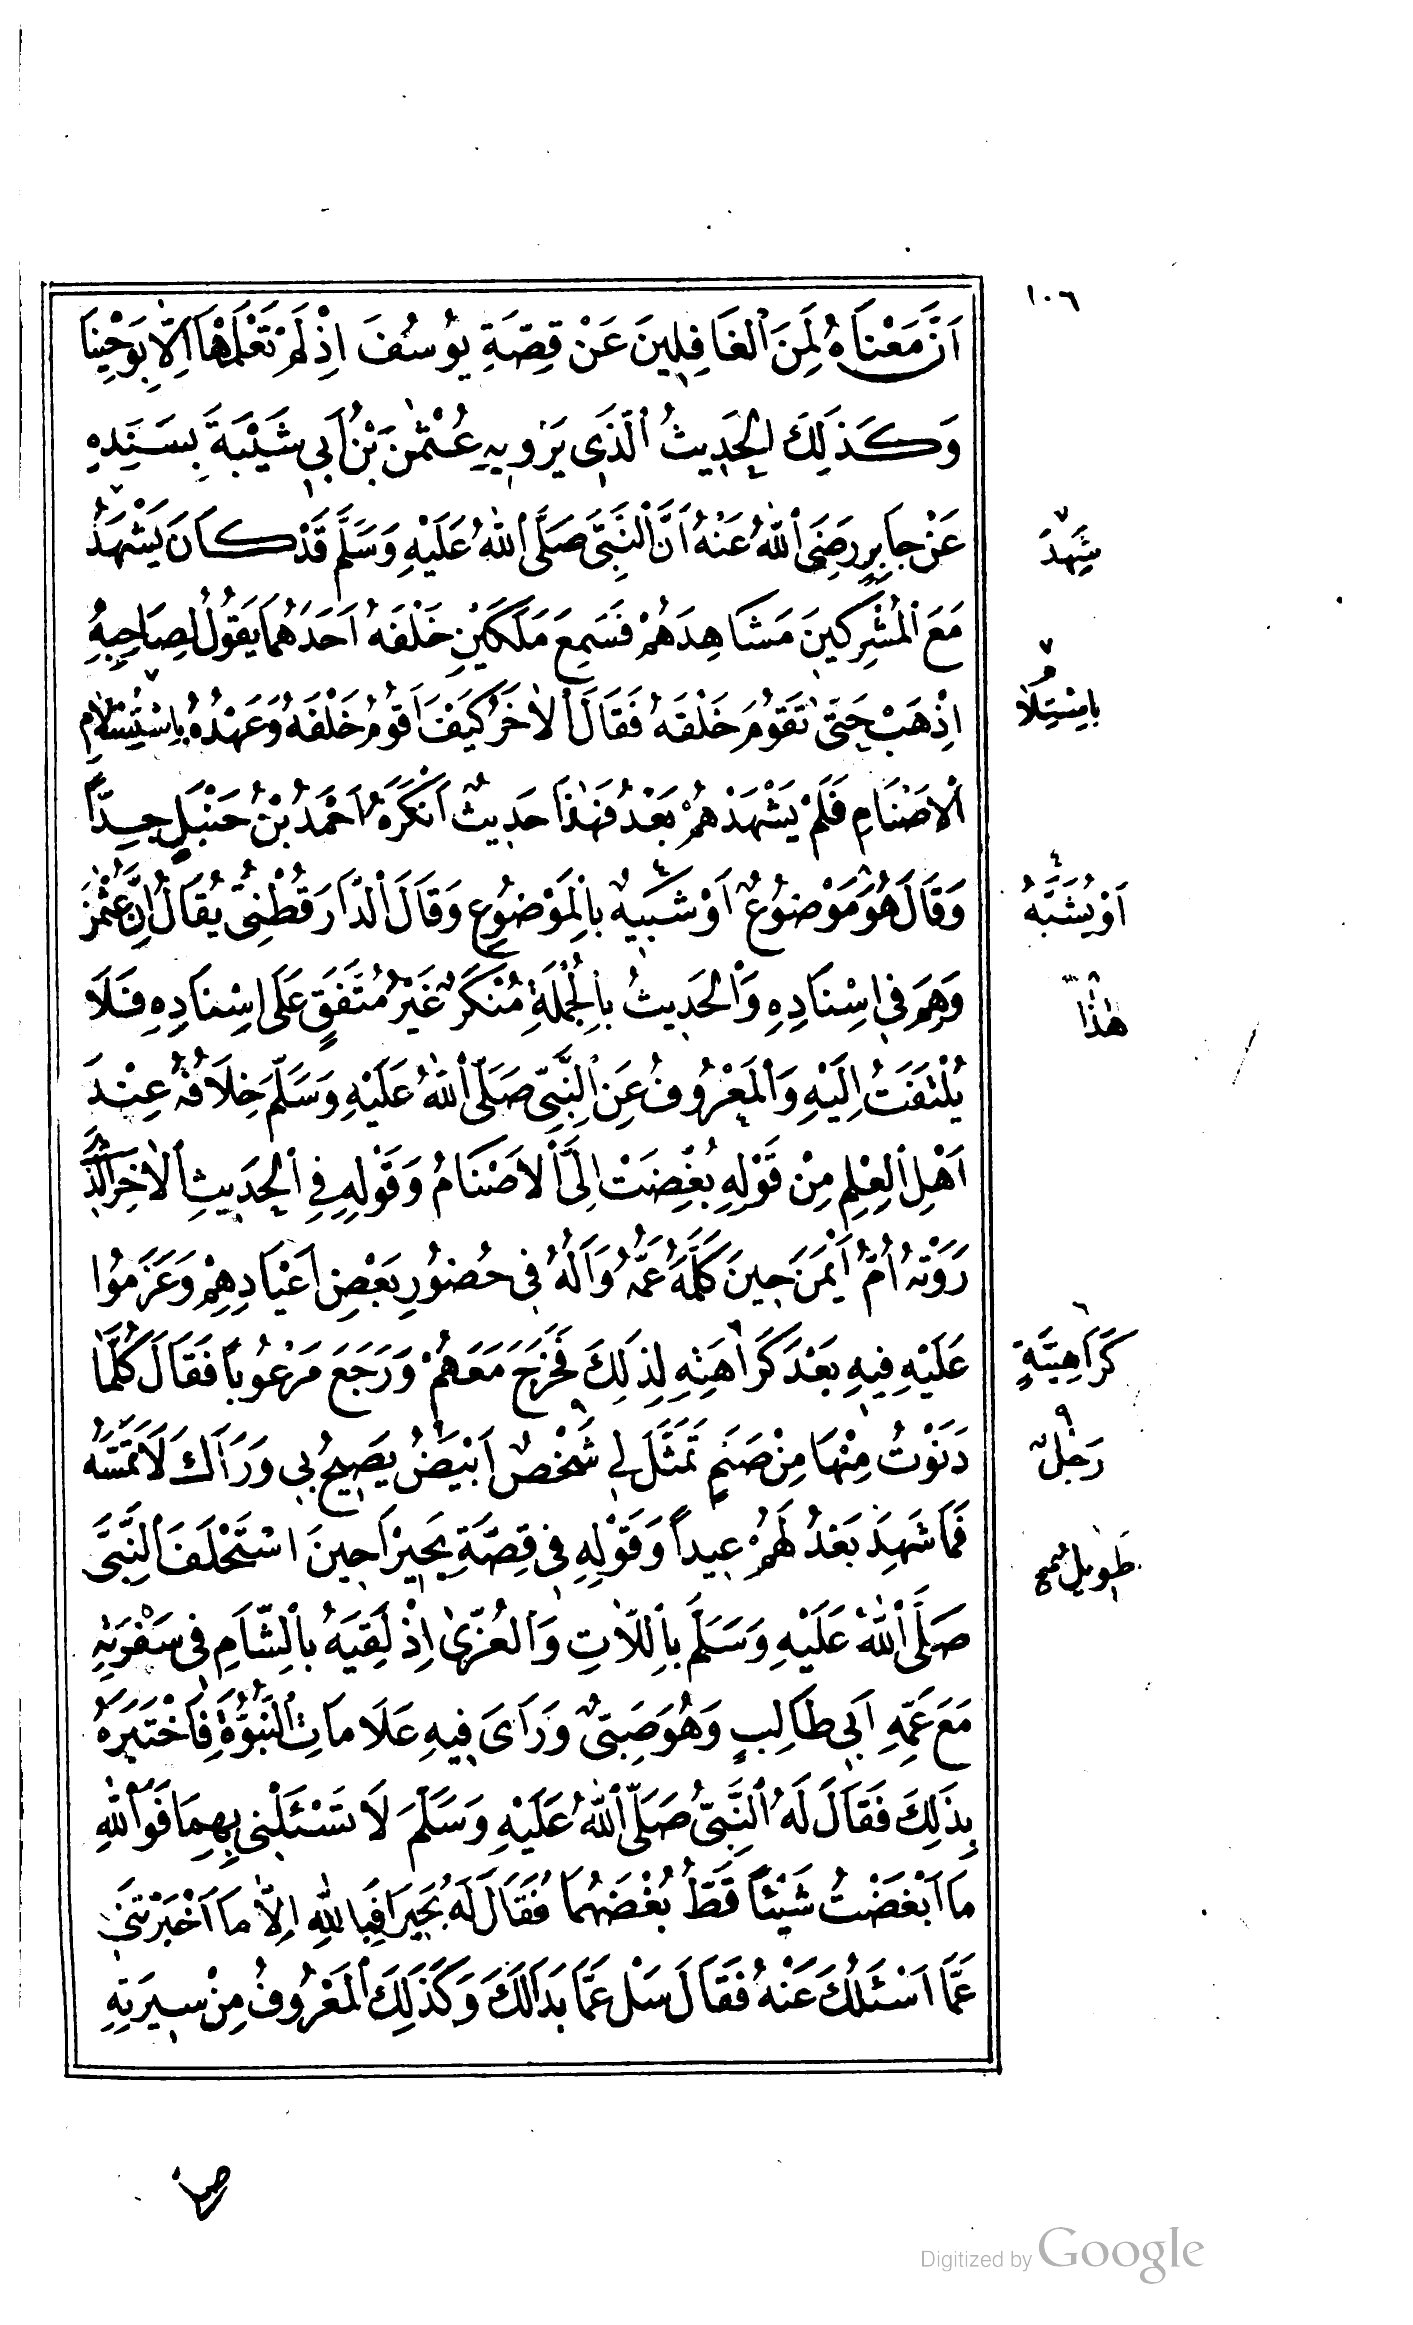 ١٠٦
اَنَّ مَعْنَاهُ لَمِنَ الْغَافِلِينَ عَنْ قِصَّةِ يُوسُفَ اِذْ لَمْ تَعْلَمْهَا اِلَّا بِوَحْيِنَا
وَكَذَلِكَ الْحَدِيثُ الَّذِي يَرْوِيهِ عُثْمٰنُ بْنُ اَبِي شَيْبَةَ بِسَنَدِهِ
عَنْ جَابِرٍ رَضِيَ اللّٰهُ عَنْهُ اَنَّ النَّبِيَّ صَلَّى اللّٰهُ عَلَيْهِ وَسَلَّمَ قَدْ كَانَ يَشْهَدُ
شَهِدَ
مَعَ الْمُشْرِكِينَ مَشَاهِدَهُمْ فَسَمِعَ مَلَكَيْنِ خَلْفَهُ اَحَدُهُمَا يَقُولُ لِصَاحِبِهِ
اِذْهَبْ حَتَّى تَقُومَ خَلْفَهُ فَقَالَ الْاٰخَرُ كَيْفَ اَقُومُ خَلْفَهُ وَعَهْدُهُ بِاسْتِلَامِ
بِاسْتِلَا
الْاَصْنَامِ فَلَمْ يَشْهَدْهُمْ بَعْدُ فَهٰذَا حَدِيثٌ اَنْكَرَهُ اَحْمَدُ بْنُ حَنْبَلٍ جِدًّا
وَقَالَ هُوَ مَوْضُوعٌ اَوْ شَبِيهٌ بِالْمَوْضُوعِ وَقَالَ الدَّارَقُطْنِيُّ يُقَالُ اِنَّ عُثْمٰنَ
اَوْ يُشَبَّهُ
وَهِمَ فِي اِسْنَادِهِ وَالْحَدِيثُ بِالْجُمْلَةِ مُنْكَرٌ غَيْرُ مُتَّفَقٍ عَلَى اِسْنَادِهِ فَلَا
هٰذَا
يُلْتَفَتُ اِلَيْهِ وَالْمَعْرُوفُ عَنِ النَّبِيِّ صَلَّى اللّٰهُ عَلَيْهِ وَسَلَّمَ خِلَافُهُ عِنْدَ
اَهْلِ الْعِلْمِ مِنْ قَوْلِهِ بُغِّضَتْ اِلَيَّ الْاَصْنَامُ وَقَوْلِهِ فِي الْحَدِيثِ الْاٰخَرِ الَّذِي
رَوَتْهُ اُمُّ اَيْمَنَ حِينَ كَلَّمَهُ عَمُّهُ وَاٰلُهُ فِي حُضُورِ بَعْضِ اَعْيَادِهِمْ وَعَزَمُوا
عَلَيْهِ فِيهِ بَعْدَ كَرَاهَتِهِ لِذَلِكَ فَخَرَجَ مَعَهُمْ وَرَجَعَ مَرْعُوبًا فَقَالَ كُلَّمَا
كَرَاهِيَةٍ
دَنَوْتُ مِنْهَا مِنْ صَنَمٍ تَمَثَّلَ لِي شَخْصٌ اَبْيَضُ يَصِيحُ بِي وَرَاءَكَ لَا تَمَسَّهُ
رَجُلٌ
فَمَا شَهِدَ بَعْدُ لَهُمْ عِيدًا وَقَوْلِهِ فِي قِصَّةِ بَحِيرَا حِينَ اسْتَحْلَفَ النَّبِيَّ
طَوِيلٌ
صَلَّى اللّٰهُ عَلَيْهِ وَسَلَّمَ بِاللَّاتِ وَالْعُزَّىٰ اِذْ لَقِيَهُ بِالشَّامِ فِي سَفْرَتِهِ
مَعَ عَمِّهِ اَبِي طَالِبٍ وَهُوَ صَبِيٌّ وَرَاَى فِيهِ عَلَامَاتِ النُّبُوَّةِ فَاخْتَبَرَهُ
بِذَلِكَ فَقَالَ لَهُ النَّبِيُّ صَلَّى اللّٰهُ عَلَيْهِ وَسَلَّمَ لَا تَسْئَلْنِي بِهِمَا فَوَاللّٰهِ
مَا اَبْغَضْتُ شَيْئًا قَطُّ بُغْضَهُمَا فَقَالَ لَهُ بَحِيرَا فَبِاللّٰهِ اِلَّا مَا اَخْبَرْتَنِي
عَمَّا اَسْئَلُكَ عَنْهُ فَقَالَ سَلْ عَمَّا بَدَا لَكَ وَكَذَلِكَ الْمَعْرُوفُ مِنْ سِيرَتِهِ
Digitized by Google